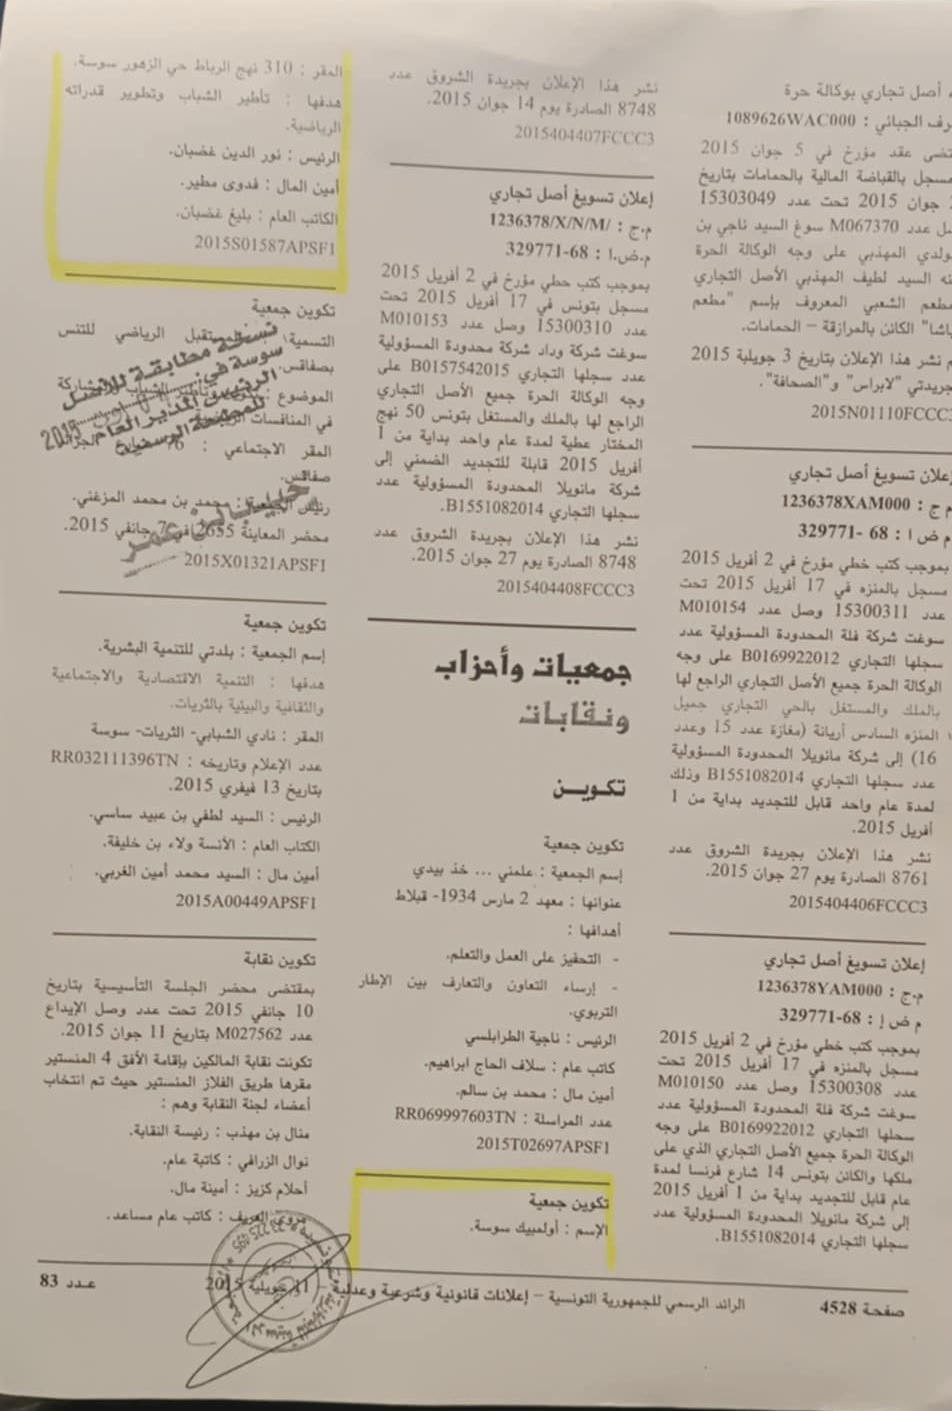 ء أصل تجاري بوكالة حرة
رف الجبائي : 1089626WAC000
تضى عقد مؤرخ في 5 جوان 2015
مسجل بالقباضة المالية بالحمامات بتاريخ
جوان 2015 تحت عدد 15303049
صل عدد M067370 سوغ السيد ناجي بن
ولدي المهذبي على وجه الوكالة الحرة
نه السيد لطيف المهذبي الأصل التجاري
مطعم الشعبي المعروف بإسم "مطعم
باشا" الكائن بالمرازقة – الحمامات.
م نشر هذا الإعلان بتاريخ 3 جويلية 2015
جريدتي "لابراس" و"الصحافة".
2015N01110FCCC3
إعلان تسويغ أصل تجاري
م ج : 1236378XAM000
م ض ا : 68 -329771
بموجب كتب خطي مؤرخ في 2 أفريل 2015
مسجل بالمنزه في 17 أفريل 2015 تحت
عدد 15300311 وصل عدد M010154
سوغت شركة فلة المحدودة المسؤولية عدد
سجلها التجاري B0169922012 على وجه
الوكالة الحرة جميع الأصل التجاري الراجع لها
بالملك والمستغل بالحي التجاري جميل
المنزه السادس أريانة (مغازة عدد 15 وعدد
16) إلى شركة مانويلا المحدودة المسؤولية
عدد سجلها التجاري B1551082014 وذلك
لمدة عام واحد قابل للتجديد بداية من 1
أفريل 2015.
نشر هذا الإعلان بجريدة الشروق عدد
8761 الصادرة يوم 27 جوان 2015.
2015404406FCCC3
إعلان تسويغ أصل تجاري
م.ج : 1236378YAM000
م ض إ : 68-329771
بموجب كتب خطي مؤرخ في 2 أفريل 2015
مسجل بالمنزه في 17 أفريل 2015 تحت
عدد 15300308 وصل عدد M010150
سوغت شركة فلة المحدودة المسؤولية عدد
سجلها التجاري B0169922012 على وجه
الوكالة الحرة جميع الأصل التجاري الذي على
ملكها والكائن بتونس 14 شارع فرنسا لمدة
عام قابل للتجديد بداية من 1 أفريل 2015
إلى شركة مانويلا المحدودة المسؤولية عدد
سجلها التجاري B1551082014.
نشر هذا الإعلان بجريدة الشروق عدد
8748 الصادرة يوم 14 جوان 2015.
2015404407FCCC3
إعلان تسويغ أصل تجاري
م.ج : /1236378/X/N/M
م.ض.ا : 68-329771
بموجب كتب خطي مؤرخ في 2 أفريل 2015
مسجل بتونس في 17 أفريل 2015 تحت
عدد 15300310 وصل عدد M010153
سوغت شركة وداد شركة محدودة المسؤولية
عدد سجلها التجاري B0157542015 على
وجه الوكالة الحرة جميع الأصل التجاري
الراجع لها بالملك والمستغل بتونس 50 نهج
المختار عطية لمدة عام واحد بداية من 1
أفريل 2015 قابلة للتجديد الضمني إلى
شركة مانويلا المحدودة المسؤولية عدد
سجلها التجاري B1551082014.
نشر هذا الإعلان بجريدة الشروق عدد
8748 الصادرة يوم 27 جوان 2015.
2015404408FCCC3
جمعيات وأحزاب
ونقابات
تكوين
تكوين جمعية
إسم الجمعية : علمني ... خذ بيدي
عنوانها : معهد 2 مارس 1934- قبلاط
أهدافها :
- التحفيز على العمل والتعلم.
- إرساء التعاون والتعارف بين الإطار
التربوي.
الرئيس : ناجية الطرابلسي
كاتب عام : سلاف الحاج ابراهيم.
أمين مال : محمد بن سالم.
عدد المراسلة : RR069997603TN
2015T02697APSF1
تكوين جمعية
الإسم : أولمبيك سوسة.
المقر : 310 نهج الرباط حي الزهور سوسة.
هدفها : تأطير الشباب وتطوير قدراته
الرياضية.
الرئيس : نور الدين غضبان.
أمين المال : فدوى مطير.
الكاتب العام : بليغ غضبان.
2015S01587APSF1
تكوين جمعية
التسمية مستقبل الرياضي للتنس
بصفاقس.
الموضوع : الشباب والمشاركة
في المنافسات الرياضية
المقر الاجتماعي : 76
صفاقس.
رئيس الجمعية : محمد بن محمد المزغني.
محضر المعاينة 2655 في 7 جانفي 2015.
2015X01321APSF1
نسخة مطابقة للأصل
سوسة في: 2015
الرئيس المدير العام
للمطبعة الرسمية
تكوين جمعية
إسم الجمعية : بلدتي للتنمية البشرية.
هدفها : التنمية الاقتصادية والاجتماعية
والثقافية والبيئية بالثريات.
المقر : نادي الشبابي- الثريات- سوسة
عدد الإعلام وتاريخه : RR032111396TN
بتاريخ 13 فيفري 2015.
الرئيس : السيد لطفي بن عبيد ساسي.
الكتاب العام : الأنسة ولاء بن خليفة.
أمين مال : السيد محمد أمين الغربي.
2015A00449APSF1
تكوين نقابة
بمقتضى محضر الجلسة التأسيسية بتاريخ
10 جانفي 2015 تحت عدد وصل الإيداع
عدد M027562 بتاريخ 11 جوان 2015.
تكونت نقابة المالكين بإقامة الأفق 4 المنستير
مقرها طريق الفلاز المنستير حيث تم انتخاب
أعضاء لجنة النقابة وهم :
منال بن مهذب : رئيسة النقابة.
نوال الزرافي : كاتبة عام.
أحلام كزيز : أمينة مال.
مروى العريف : كاتب عام مساعد.
صفحة 4528
الرائد الرسمي للجمهورية التونسية – إعلانات قانونية وشرعية وعدلية
11 جويلية 2015
عـدد 83